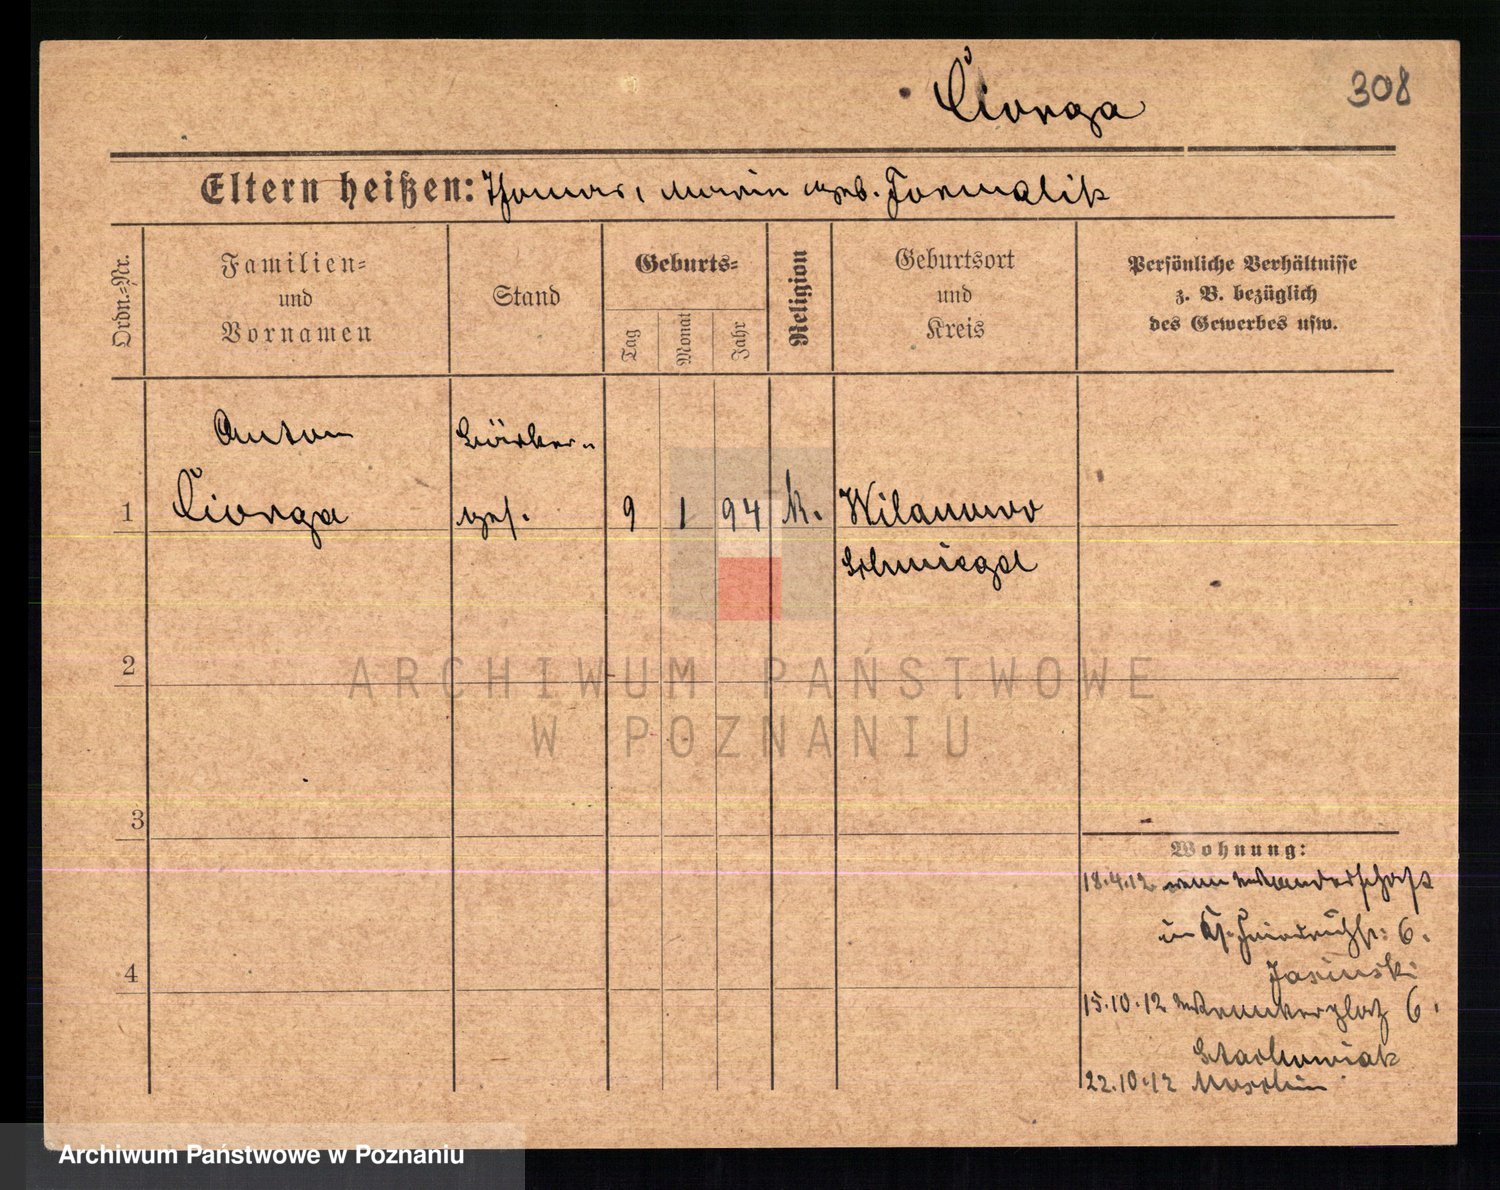 Ciorga
308
Eltern heißen: Thomas, Marie geb. Formalik
Ordn.-Nr.
Familien-
und
Vornamen
Stand
Geburts-
Tag
Monat
Jahr
Religion
Geburtsort
und
Kreis
Persönliche Verhältnisse
z. B. bezüglich
des Gewerbes usw.
Anton
Bäcker-
1 Ciorga ges. 9 1 94 k. Wilanowo
Schmiegel
2
ARCHIWUM PAŃSTWOWE
W POZNANIU
3
Wohnung:
18.4.12 Wanderschaft
in 6.
Jasinski
15.10.12 6.
4
Stachowiak
22.10.12
Archiwum Państwowe w Poznaniu